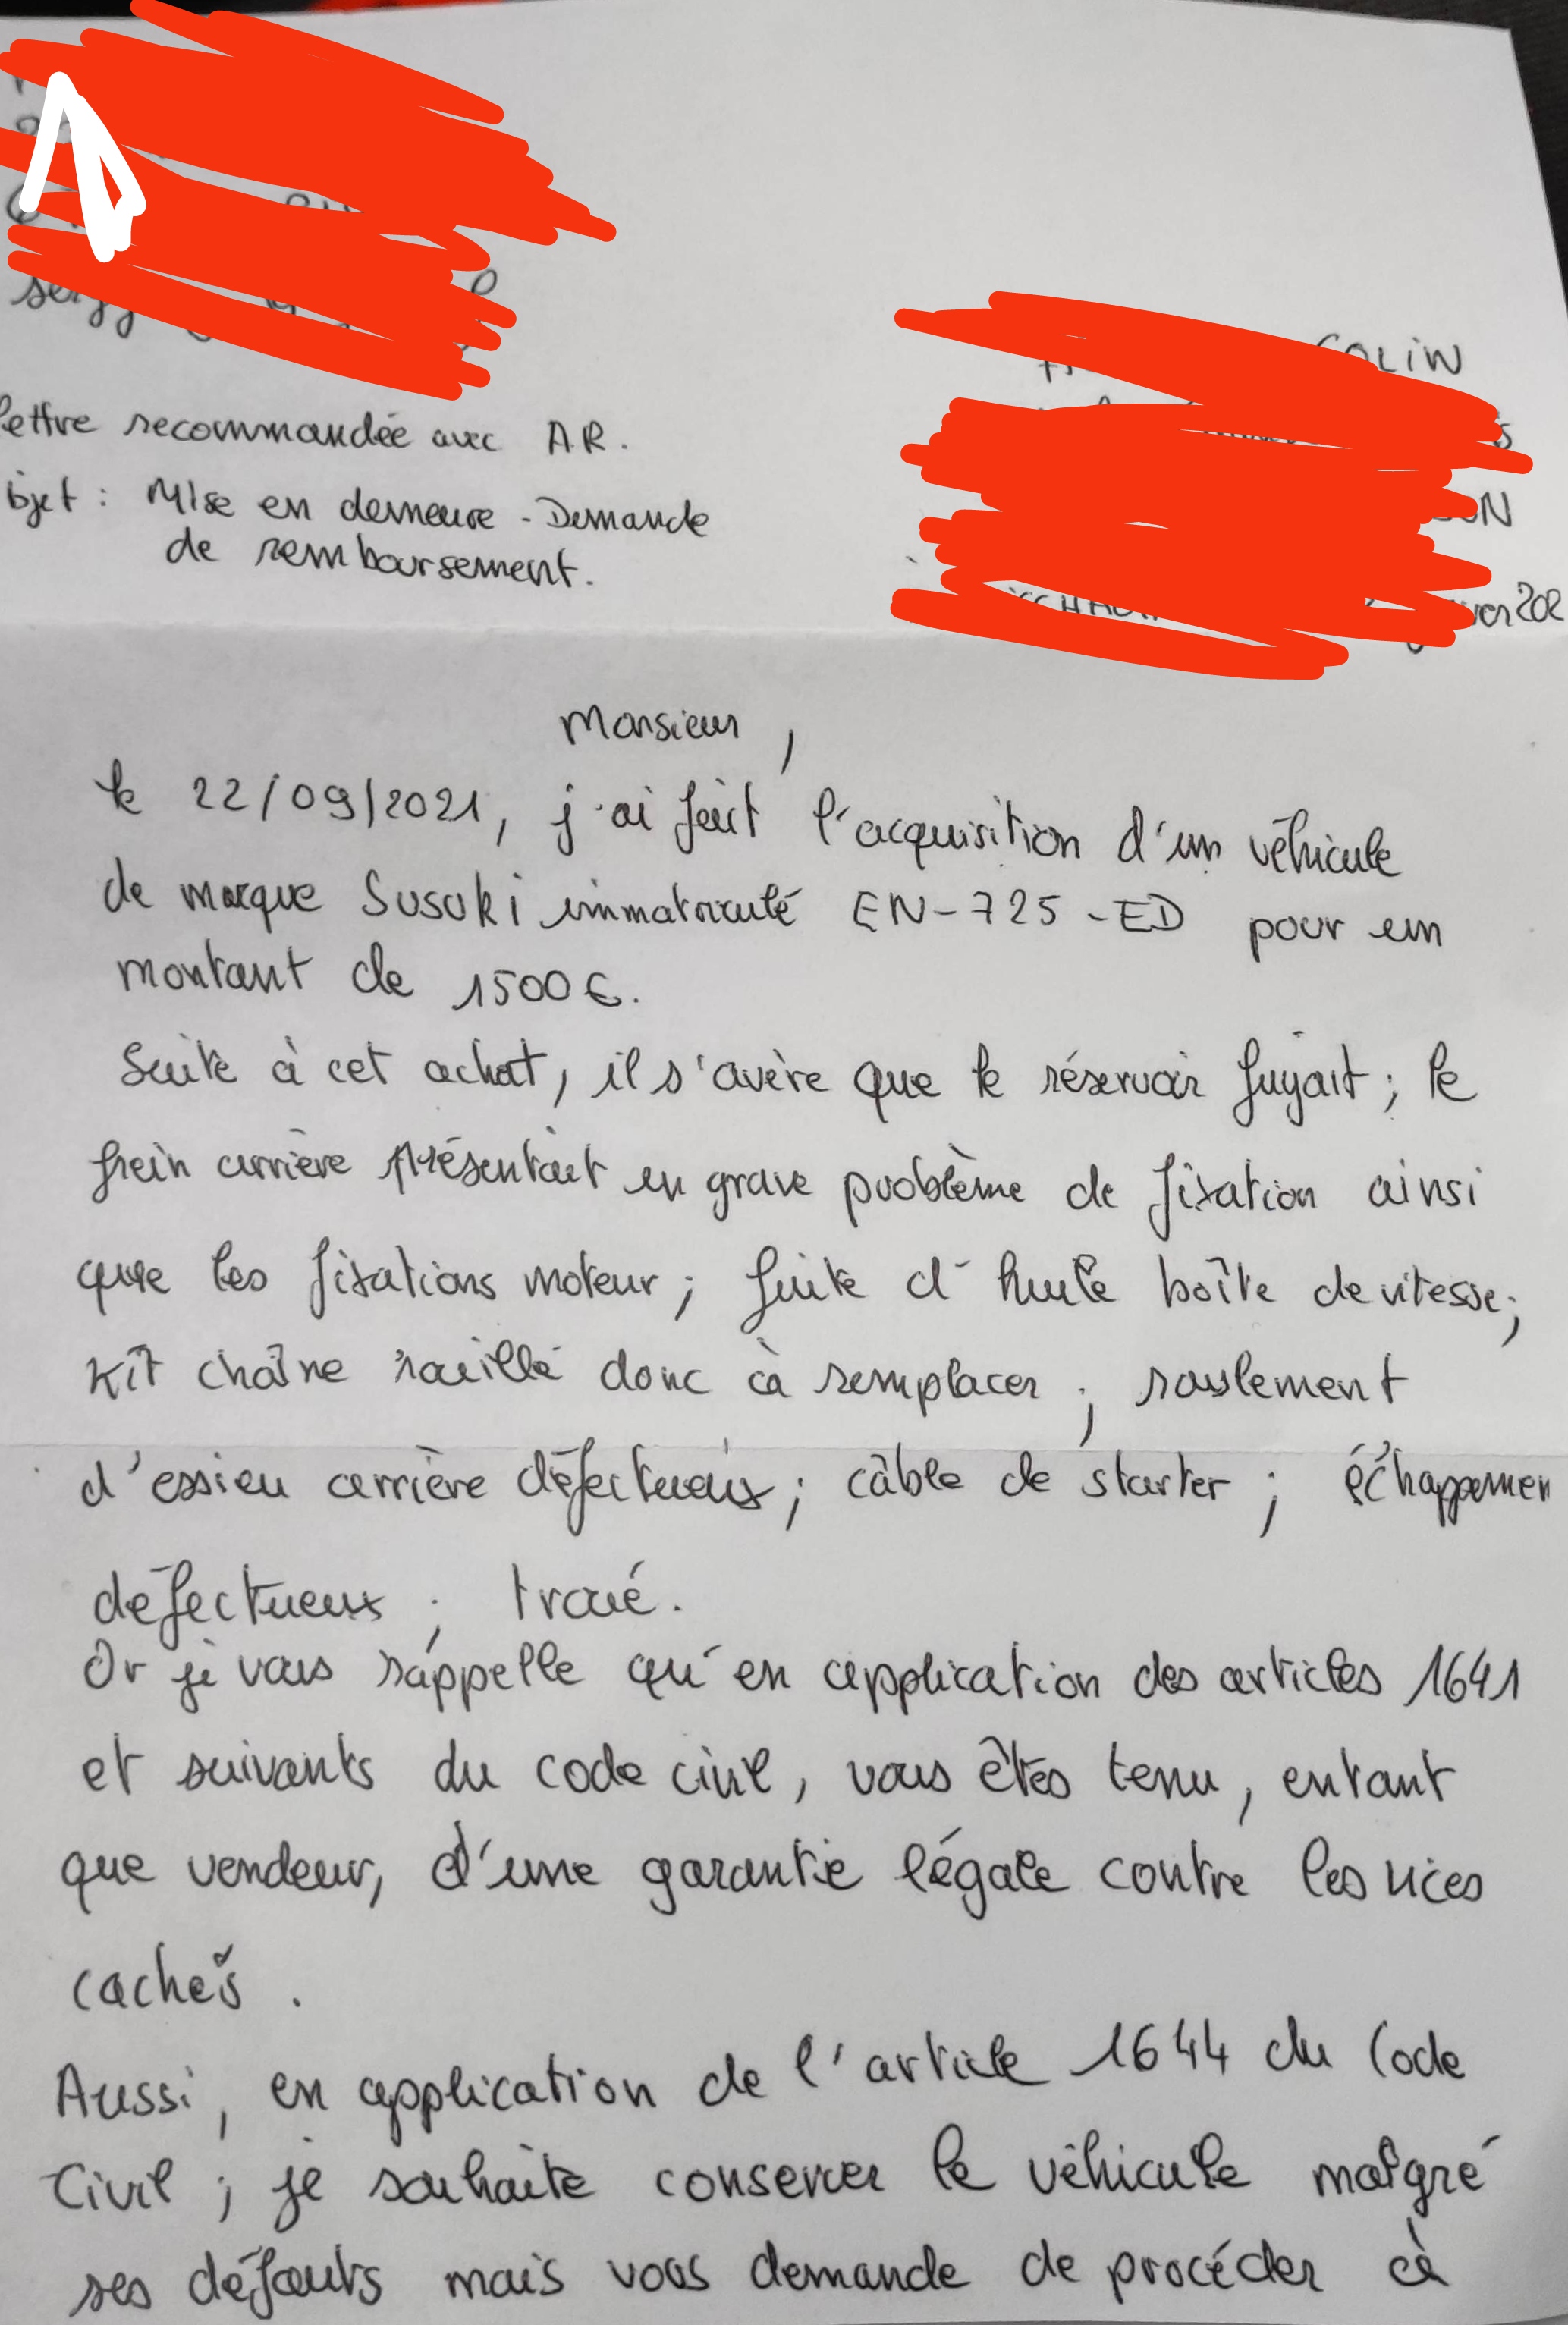 COLIN
lettre recommandée avec A.R.
bjet : Mise en demeure - Demande
de remboursement.
Monsieur,
le 22/09/2021, j'ai fait l'acquisition d'un véhicule
de marque Susuki immatriculé EN-725-ED pour un
montant de 1500€.
Suite à cet achat, il s'avère que le réservoir fuyait; le
frein arrière présentait un grave problème de fixation ainsi
que les fixations moteur; fuite d'huile boîte de vitesse;
Kit chaîne rouillé donc à remplacer; roulement
d'essieu arrière défectueux; câble de starter; échappemen
défectueux; troué.
Or je vous rappelle qu'en application des articles 1641
et suivants du code civil, vous êtes tenu, entant
que vendeur, d'une garantie légale contre les vices
cachés.
Aussi, en application de l'article 1644 du Code
Civil; je souhaite conserver le véhicule malgré
ses défauts mais vous demande de procéder à